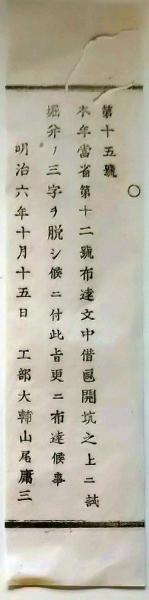 第十五號
○
本年當省第十二號布達文中借區開坑之上ニ試
掘并ノ三字ヲ脱シ候ニ付此旨更ニ布達候事
明治六年十月十五日 工部大輔山尾庸三